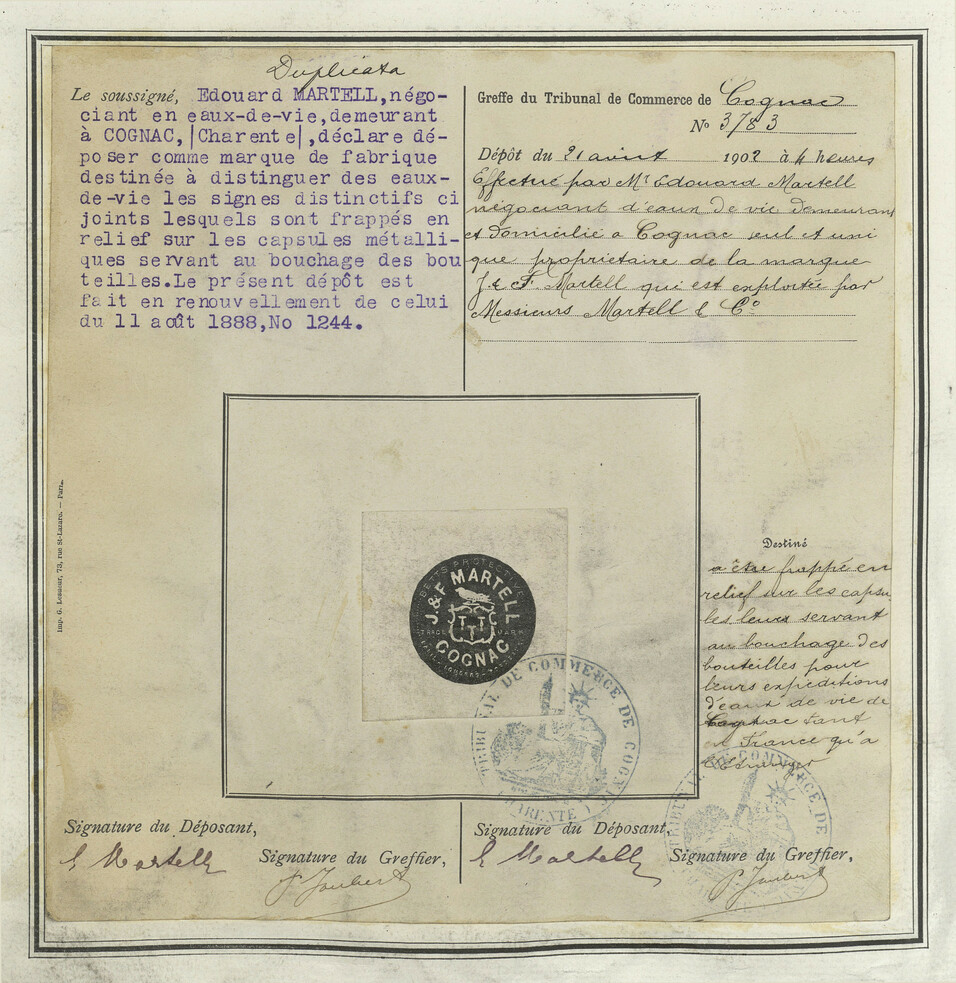 Duplicata
Le soussigné, Edouard MARTELL, négo-
ciant en eaux-de-vie, demeurant
à COGNAC, |Charente|, déclare dé-
poser comme marque de fabrique
destinée à distinguer des eaux-
de-vie les signes distinctifs ci
joints lesquels sont frappés en
relief sur les capsules métalli-
ques servant au bouchage des bou
teilles. Le présent dépôt est
fait en renouvellement de celui
du 11 août 1888, No 1244.
Greffe du Tribunal de Commerce de Cognac
No 3783
Dépôt du 21 1902 à 4 heures
Effectué par Mr Edouard Martell
négociant d'eaux de vie demeurant
et domicilié à Cognac seul et uni
que propriétaire de la marque
J. & F. Martell qui est exploitée par
Messieurs Martell & Co
J. & F. MARTELL
TRADE MARK
COGNAC
BETTS PROTECTIVE
TRIBUNAL DE COMMERCE DE COGNAC
CHARENTE
Destiné
a être frappé en
relief sur les capsu
les leurs servant
au bouchage des
bouteilles pour
leurs expéditions
d'eaux de vie de
Cognac tant
en France qu'a
l'Etranger
TRIBUNAL DE COMMERCE DE
Imp. G. Lesueur, 73, rue St-Lazare. — Paris.
Signature du Déposant,
E Martell
Signature du Greffier,
P Joubert
Signature du Déposant,
E Martell
Signature du Greffier,
P Joubert